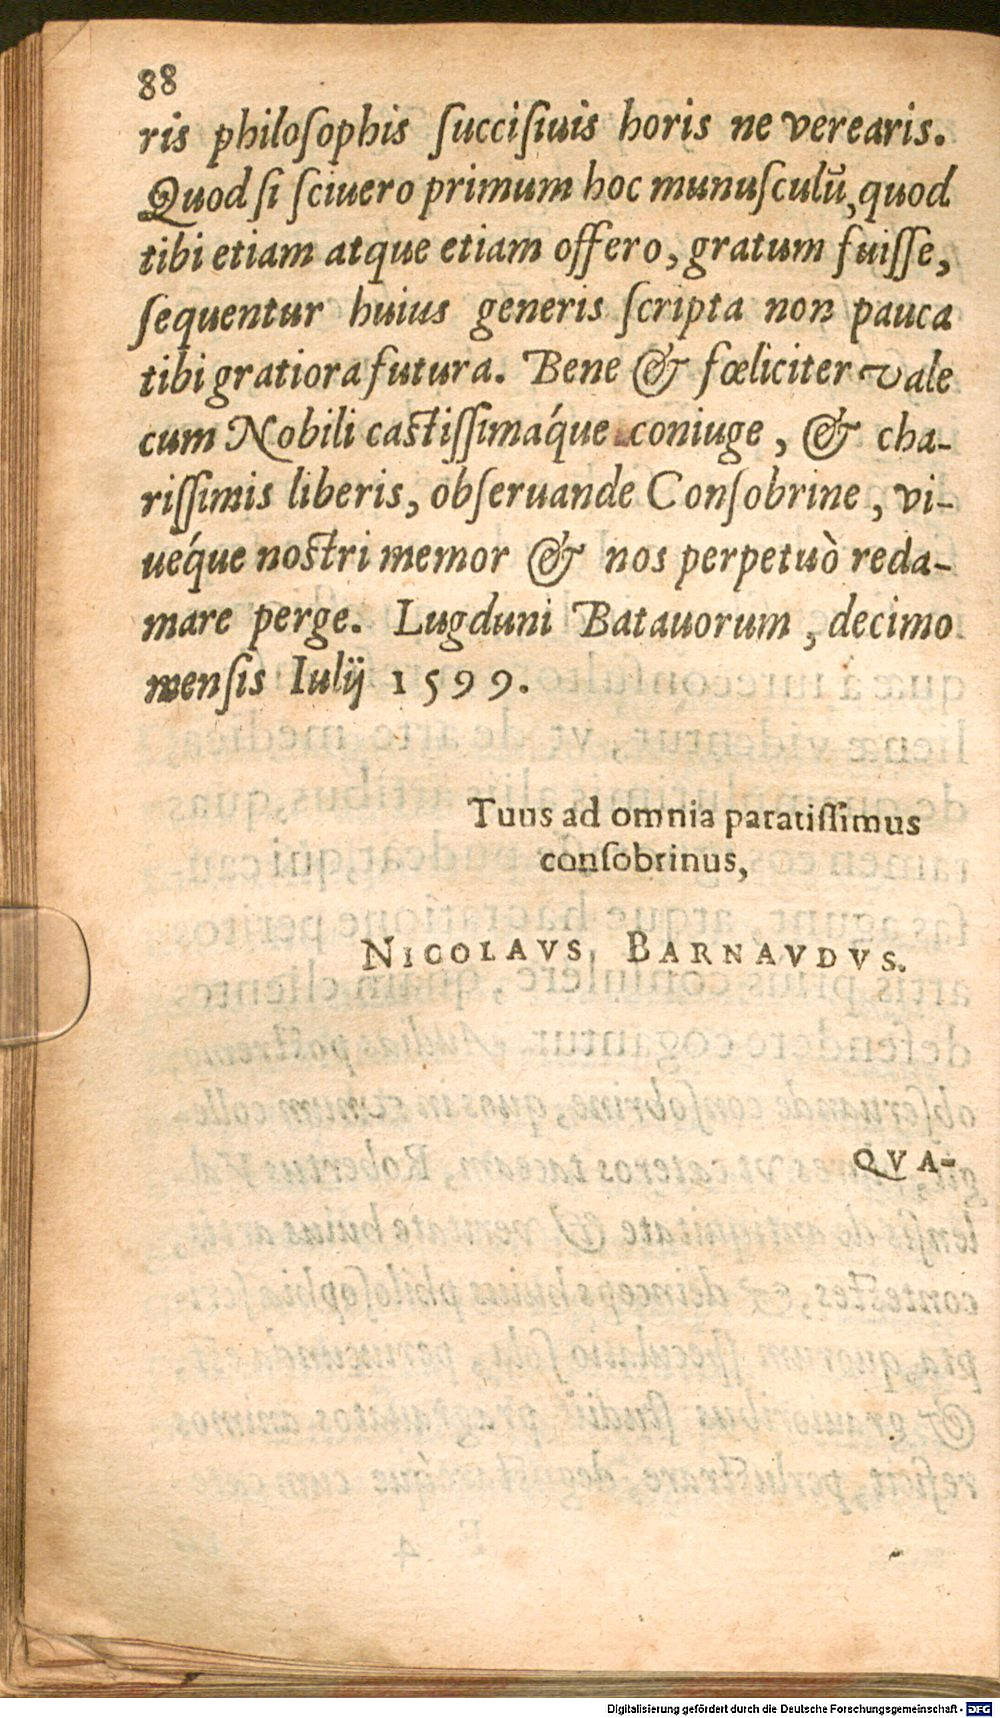 88
ris philoſophis ſucciſiuis horis ne verearis.
Quod ſi ſciuero primum hoc munuſculū, quod
tibi etiam atque etiam offero, gratum fuiſſe,
ſequentur huius generis ſcripta non pauca
tibi gratiora futura. Bene & fœliciter vale
cum Nobili caſtiſſimaq́ue coniuge, & cha-
riſſimis liberis, obſeruande Conſobrine, vi-
ueq́ue noſtri memor & nos perpetuò reda-
mare perge. Lugduni Batauorum, decimo
menſis Iulij 1599.
Tuus ad omnia paratiſſimus
conſobrinus,
NICOLAVS BARNAVDVS.
QVA-
Digitalisierung gefördert durch die Deutsche Forschungsgemeinschaft - DFG